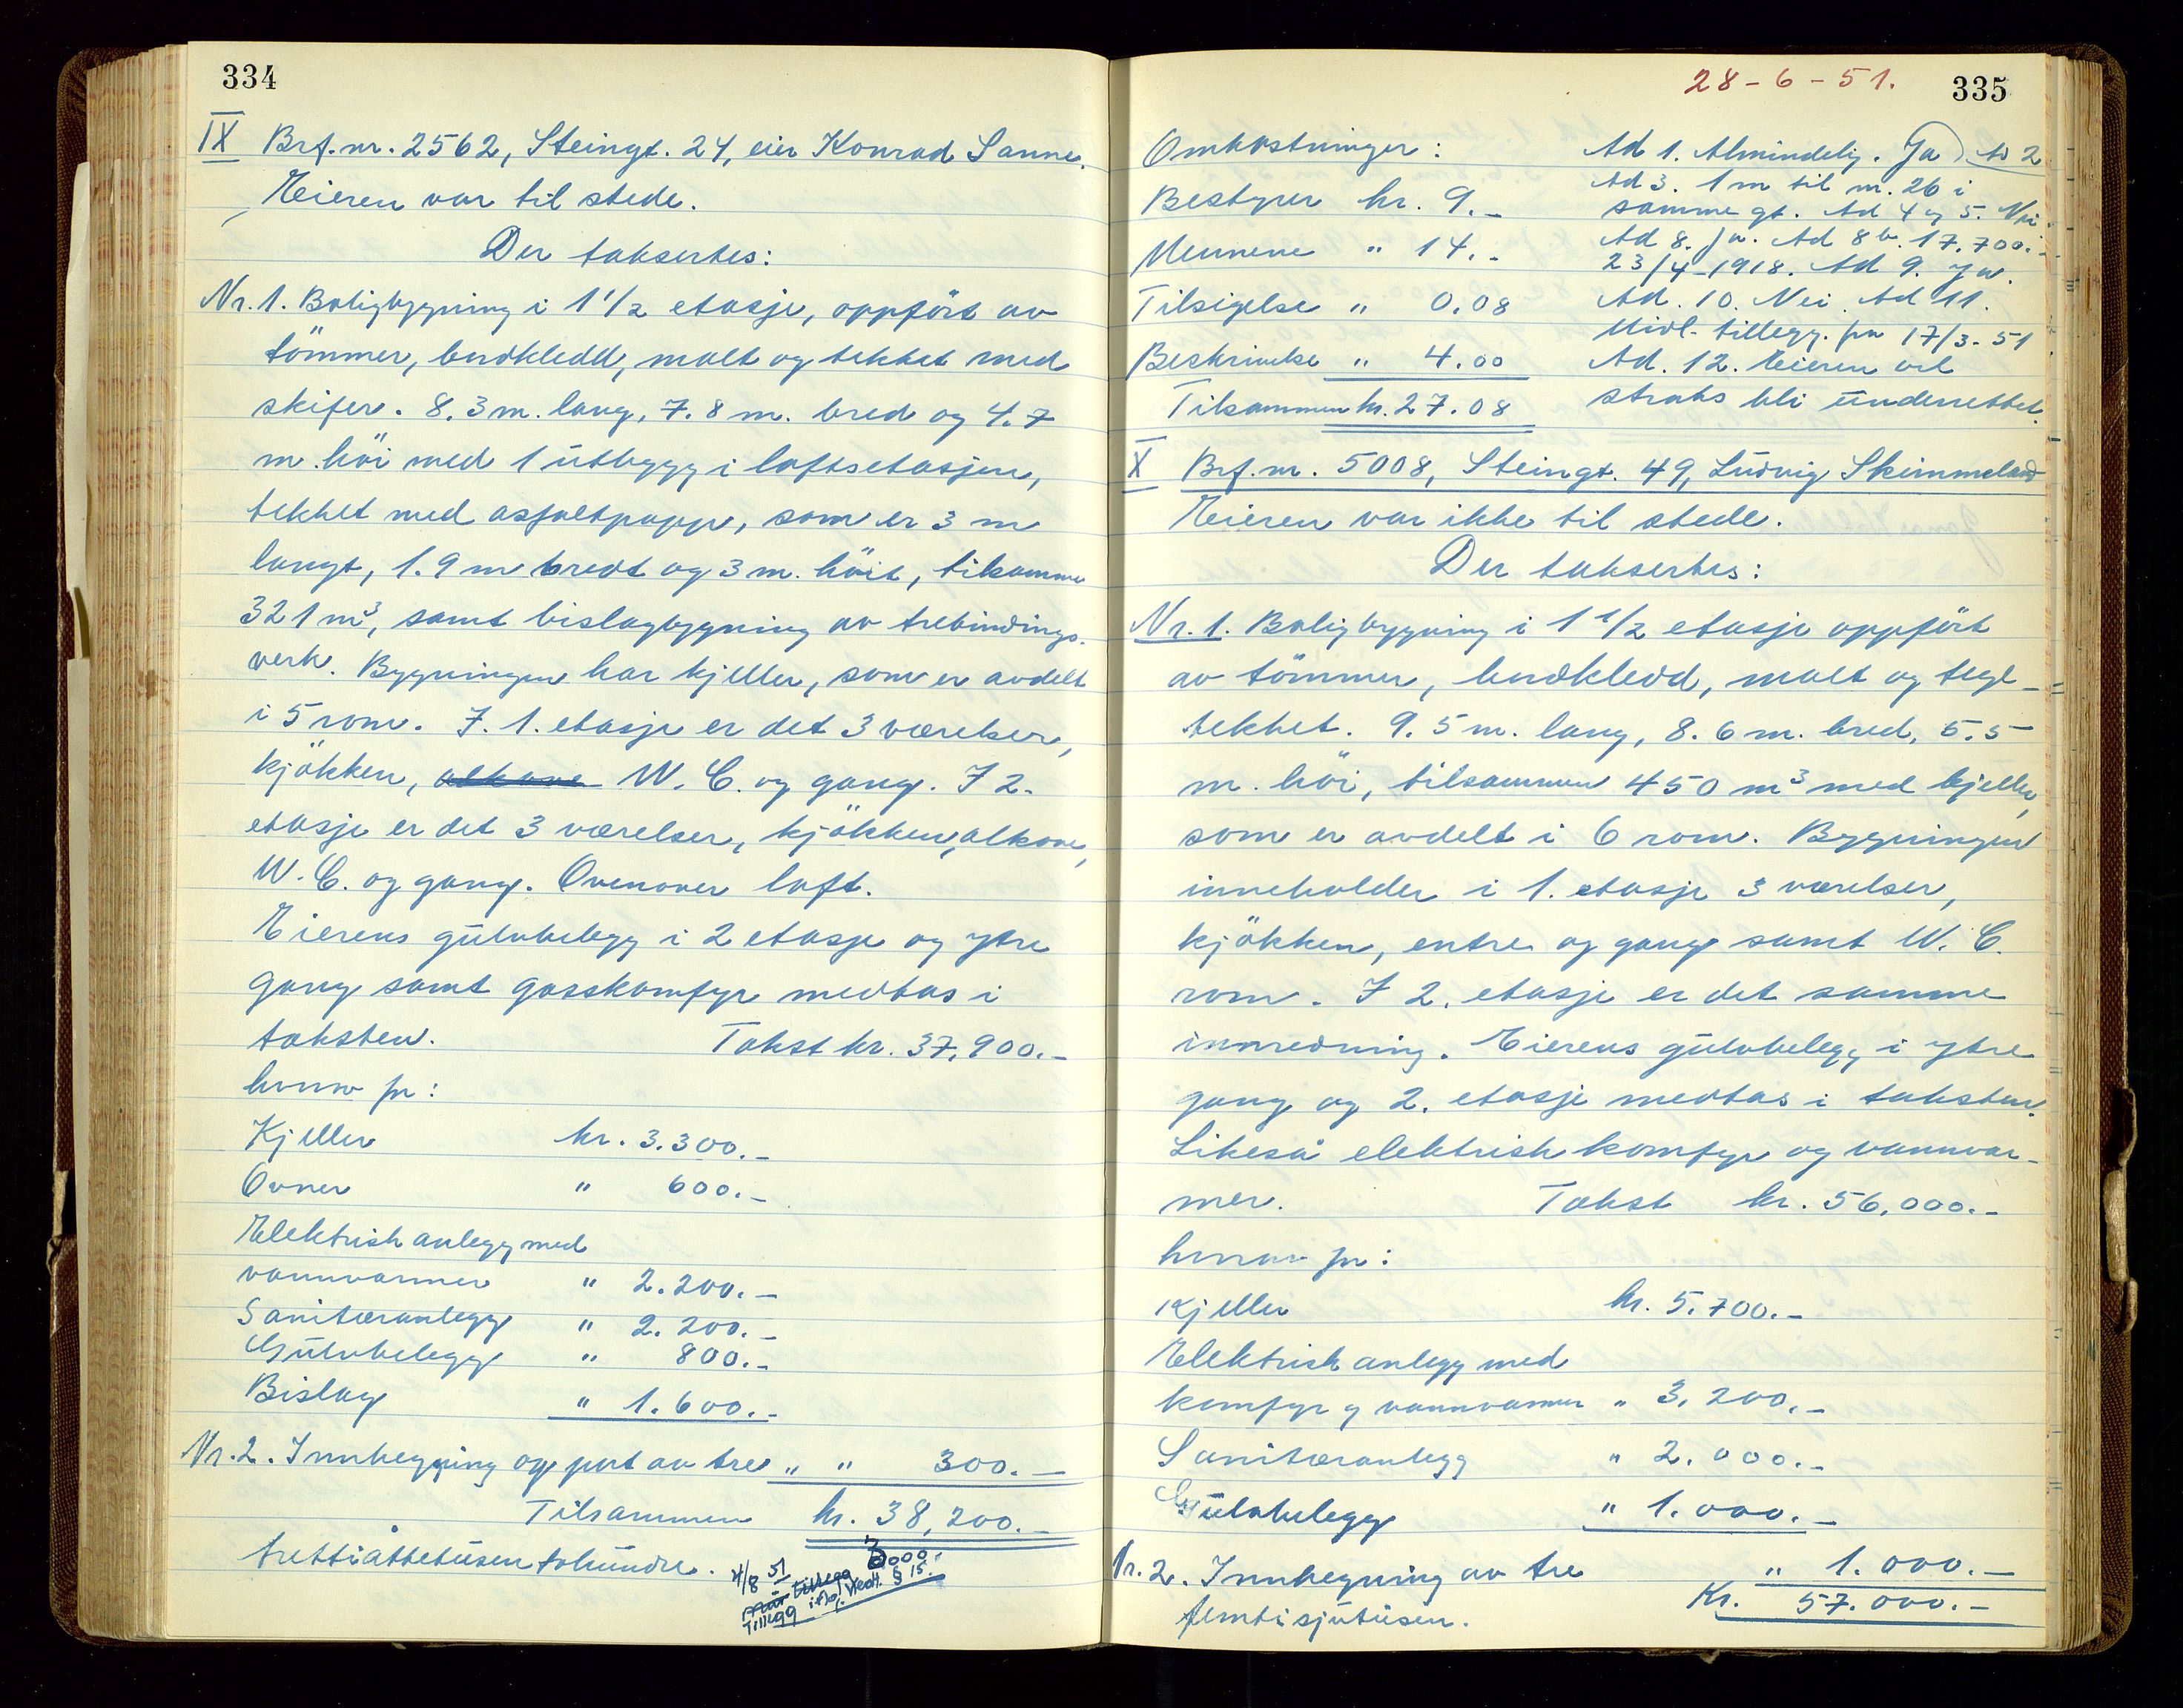 334
IX Brf.nr. 2562, Steingt. 24, eier Konrad Sanne.
Eieren var til stede.
Der taksertes:
Nr. 1. Boligbygning i 1 1/2 etasje, oppført av
tømmer, bordkledd, malt og tekket med
skifer. 8.3 m. lang, 7.8 m. bred og 4.7
m. höi med 1 utbygg i loftsetasjen,
tekket med asfaltpapp, som er 3 m
langt, 1.9 m bredt og 3 m. höit, tilsammen
321 m³, samt bislagbygning av trebindings-
verk. Bygningen har kjeller, som er avdelt
i 5 rom. I. 1. etasje er det 3 værelser,
kjökken, alkove W.C. og gang. I 2.
etasje er det 3 værelser, kjökken, alkove,
W.C. og gang. Ovenover loft.
Eierens gulvbelegg i 2 etasje og ytre
gang samt gasskomfyr medtas i
taksten. Takst kr. 37.900.-
hvorav for:
Kjeller kr. 3.300.-
Ovner " 600.-
Elektrisk anlegg med
vannvarmer " 2.200.-
Sanitæranlegg " 2.200.-
Gulvbelegg " 800.-
Bislag " 1.600.-
Nr. 2. Innhegning og port av tre " " 300.-
Tilsammen kr. 38,200.-
trettiåttetusen tohundre.
4/8 51 tillegg 3000.-
Tillegg ifløl. Vedt. § 15.
28-6-51. 335
Omkostninger:
Bestyrer kr. 9.-
Mennene " 14.-
Tilsigelse " 0.08
Beskrivelse " 4.00
Tilsammen kr. 27.08
Ad 1. Almindelig. Ja Ad 2
Ad 3. 1 m til nr. 26 i
samme gt. Ad 4 og 5. Nei.
Ad 8. Ja. Ad 8 b. 17.700.-
23/4-1918. Ad 9. Ja.
Ad. 10. Nei. Ad 11.
Midl. tillegg. fra 17/3-51
Ad. 12. Eieren vil
straks bli underrettet.
X Brf.nr. 5008, Steingt. 49, Ludvig Skimmeland
Eieren var ikke til stede.
Der taksertes:
Nr. 1. Boligbygning i 1 1/2 etasje oppfört
av tömmer, bordkledd, malt og tegl-
tekket. 9.5 m. lang, 8.6 m. bred, 5.5
m. höi, tilsammen 450 m³ med kjeller,
som er avdelt i 6 rom. Bygningen
inneholder i 1. etasje 3 værelser,
kjökken, entre og gang samt W.C.
rom. I 2. etasje er det samme
innredning. Eierens gulvbelegg i ytre
gang og 2. etasje medtas i taksten.
Likeså elektrisk komfyr og vannvar-
mer. Takst kr. 56.000.-
hvorav for:
Kjeller kr. 5.700.-
Elektrisk anlegg med
komfyr og vannvarmer " 3.200.-
Sanitæranlegg " 2.000.-
Gulvbelegg " 1.000.-
Nr. 2. Innhegning av tre " 1.000.-
Kr. 57.000.-
femtisjutusen.